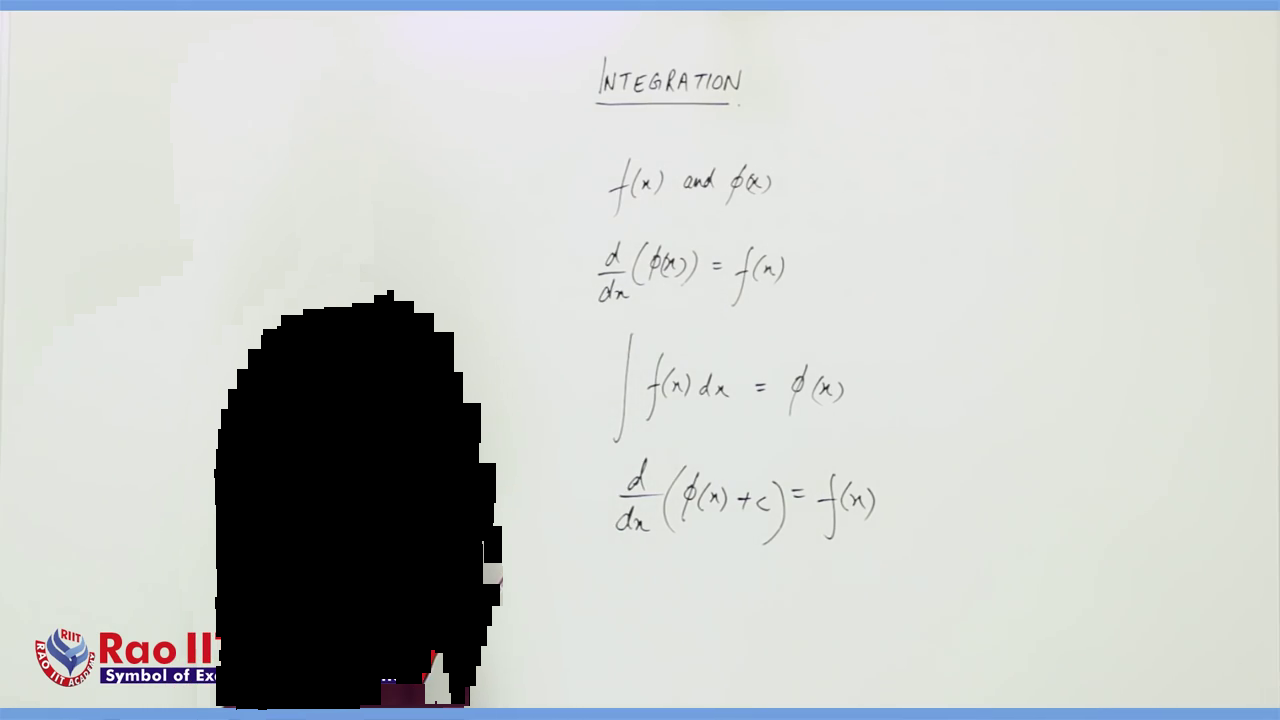 INTEGRATION
f(x) and ϕ(x)
d/dx (ϕ(x)) = f(x)
∫ f(x) dx = ϕ(x)
d/dx (ϕ(x) + c) = f(x)
RIIT
RAO IIT ACADEMY
Rao II
Symbol of Ex